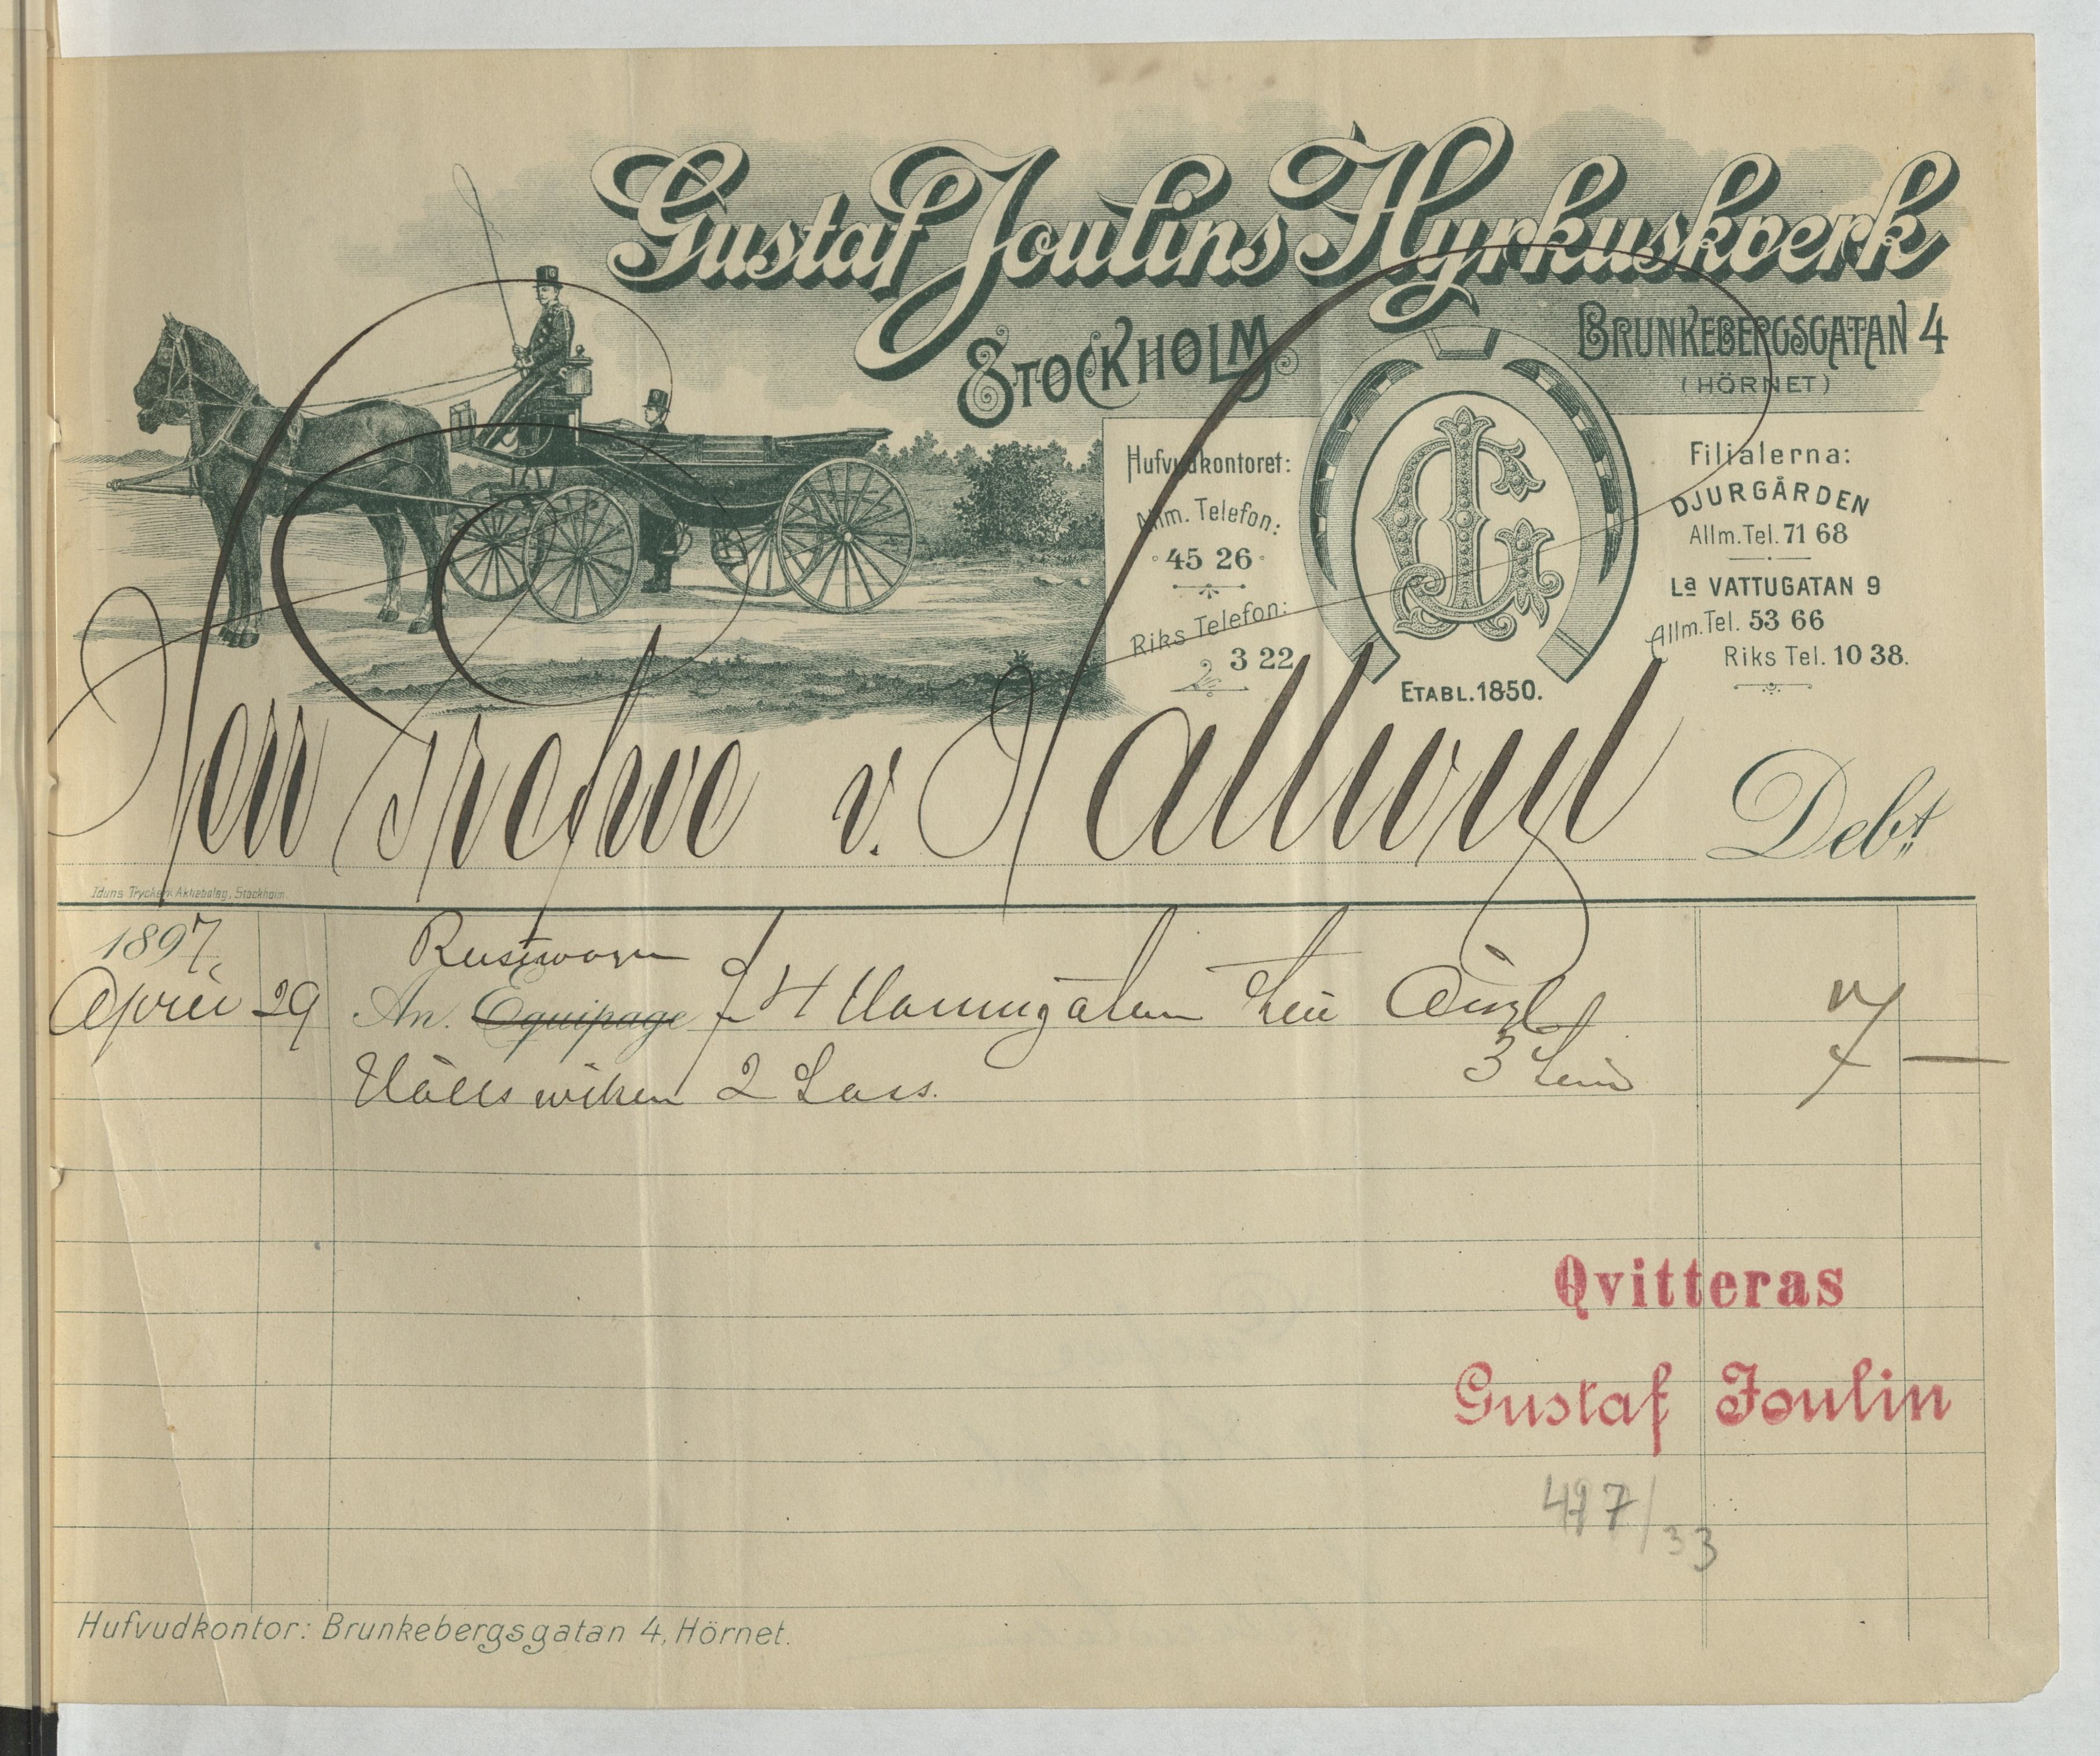 Gustaf Joulins Hyrkuskverk
STOCKHOLM
BRUNKEBERGSGATAN 4
(HÖRNET)
Hufvudkontoret:
Allm. Telefon:
45 26
Riks Telefon:
3 22
ETABL. 1850.
Filialerna:
DJURGÅRDEN
Allm. Tel. 71 68
La VATTUGATAN 9
Allm. Tel. 53 66
Riks Tel. 10 38.
Herr Grefve v. Hallwyl Debt
Iduns Tryckeri Aktiebolag, Stockholm.
1897
Rustwagn
April 29 An. Equipage fr 4 Hamngatan till
2 Lass. 3 7 —
Qvitteras
Gustaf Joulin
497/33
Hufvudkontor: Brunkebergsgatan 4, Hörnet.